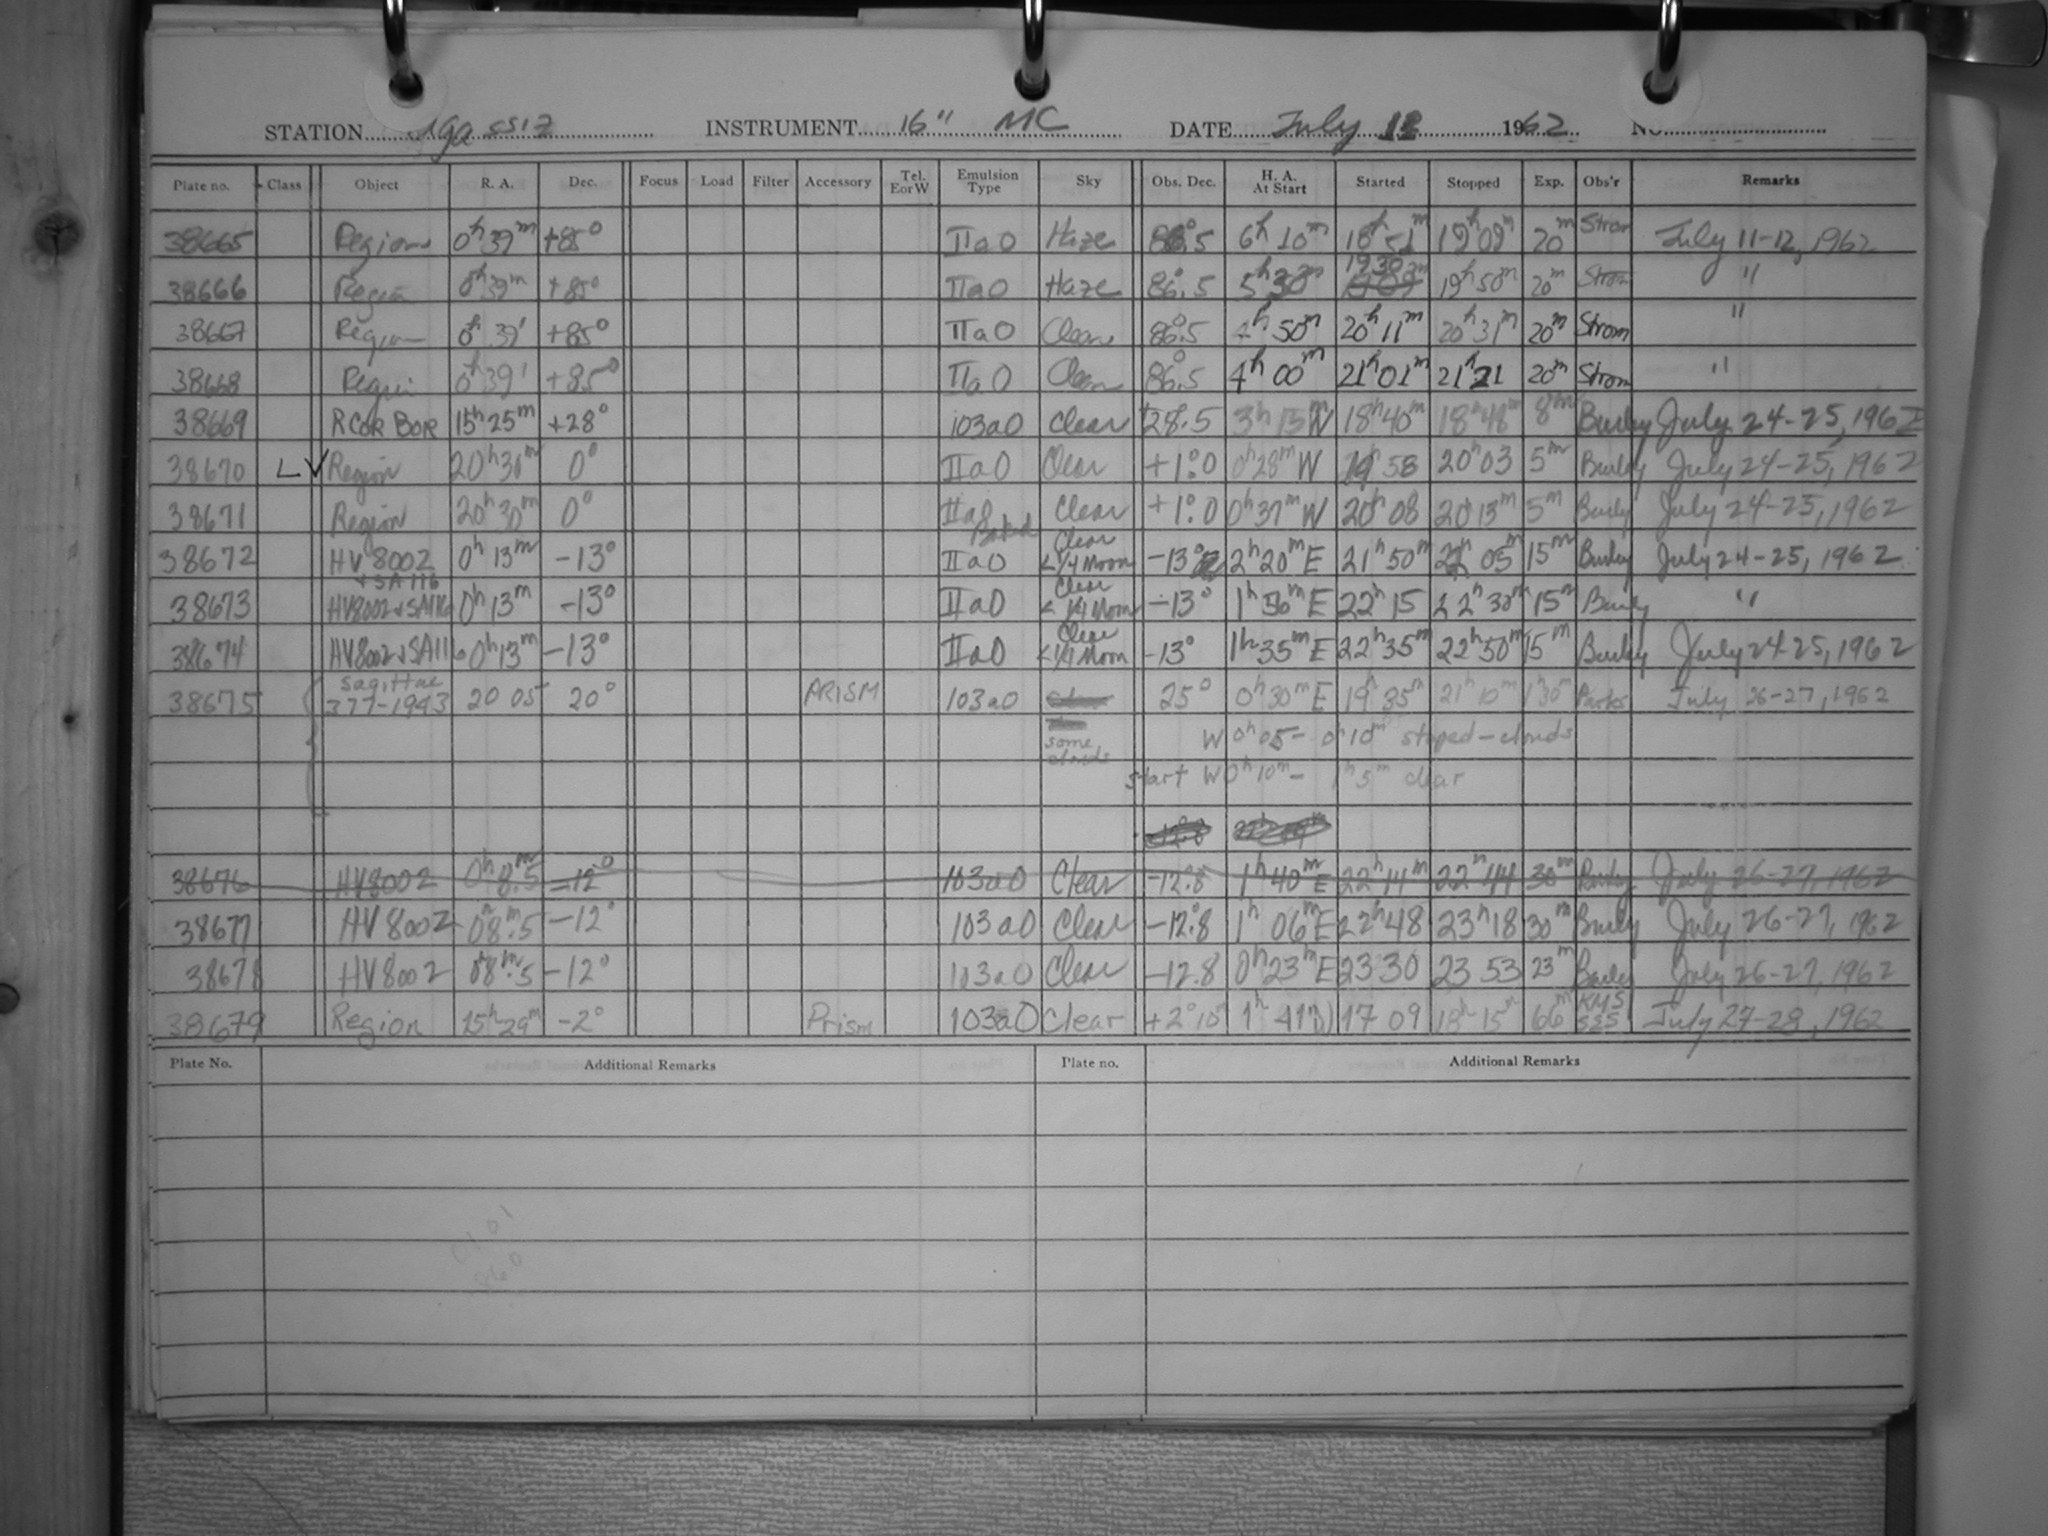 STATION Agassiz INSTRUMENT 16" MC DATE July 12 1962 No.
Plate no. Class Object R. A. Dec. Focus Load Filter Accessory Tel. E or W Emulsion Type Sky Obs. Dec. H. A. At Start Started Stopped Exp. Obs'r Remarks
38665 Region 0h 39m +85° IIaO Haze 86°.5 6h 10m 18h 51m 19h 09m 20m Strom July 11-12, 1962
38666 Region 0h 39m +85° IIaO Haze 86°.5 5h 30m 19 30 19h 50m 20m Strom "
38667 Region 0h 39' +85° IIaO Clear 86°.5 4h 50m 20h 11m 20h 31m 20m Strom "
38668 Region 0h 39' +85° IIaO Clear 86°.5 4h 00m 21h 01m 21h 21 20m Strom "
38669 R COR BOR 15h 25m +28° 103aO Clear +28°.5 3h 15m W 18h 40m 18h 48m 8m Burley July 24-25, 1962
38670 L ✓ Region 20h 30m 0° IIaO Clear +1°.0 0h 28m W 19h 58 20h 03 5m Burley July 24-25, 1962
38671 Region 20h 30m 0° IIaO Baked Clear +1°.0 0h 37m W 20h 08 20h 13m 5m Burley July 24-25, 1962
38672 HV 8002 + SA 116 0h 13m -13° IIaO Clear < 1/4 Moon -13° 2h 20m E 21h 50m 22h 05m 15m Burley July 24-25, 1962
38673 HV8002 + SA116 0h 13m -13° IIaO Clear < 1/4 Moon -13° 1h 50m E 22h 15 22h 30m 15m Burley "
38674 HV8002 + SA116 0h 13m -13° IIaO Clear < 1/4 Moon -13° 1h 35m E 22h 35m 22h 50m 15m Burley July 24-25, 1962
38675 Sagittae 377-1943 20 05 20° PRISM 103aO 25° 0h 30m E 19h 35m 21h 10m 1h 30m Parks July 26-27, 1962
some clouds W 0h 05 - 0h 10m stoped - clouds
start W 0h 10m - 1h 5m clear
38676 HV8002 0h 8m.5 -12° 103aO Clear -12°.8 1h 40m E 22h 14m 22h 44 30m Burley July 26-27, 1962
38677 HV 8002 0h 8m.5 -12° 103aO Clear -12°.8 1h 06m E 22h 48 23h 18 30m Burley July 26-27, 1962
38678 HV8002 0h 8m.5 -12° 103aO Clear -12.8 0h 23m E 23 30 23 53 23m Burley July 26-27, 1962
38679 Region 15h 29m -2° Prism 103aO Clear +2° 10' 1h 41m 17 09 18h 15m 66m KMS SES July 27-28, 1962
Plate No. Additional Remarks Plate no. Additional Remarks